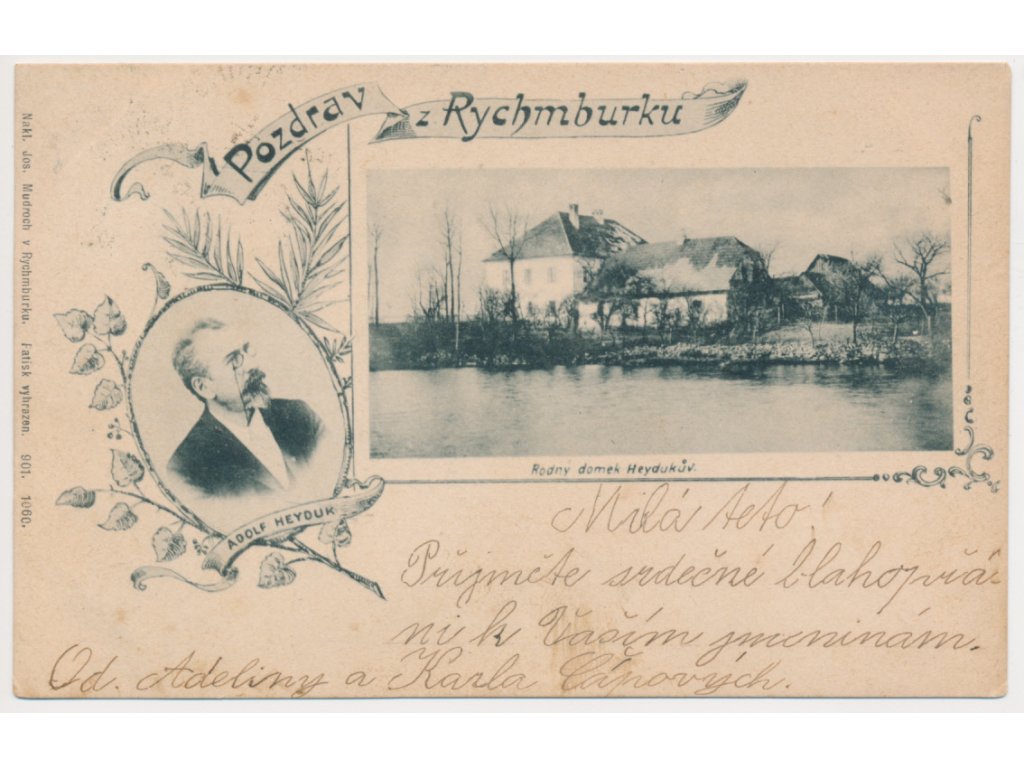 Pozdrav z Rychmburku
Nakl. Jos. Mudroch v Rychmburku. Patisk vyhrazen. 901. 1060.
Rodný domek Heydukův.
ADOLF HEYDUK
Milá teto!
Přijměte srdečné blahopřá-
ní k Vaším jmeninám.
Od. Adeliny a Karla Čápových.